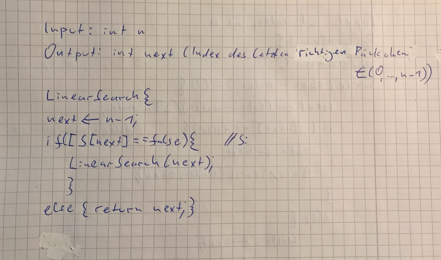 Input: int n
Output: int next (Index des letzten richtigen Päckchen
∈(0,...,n-1))
LinearSearch{
next ← n-1;
if([S[next]==false){ //S:
LinearSearch(next);
}
else { return next;}